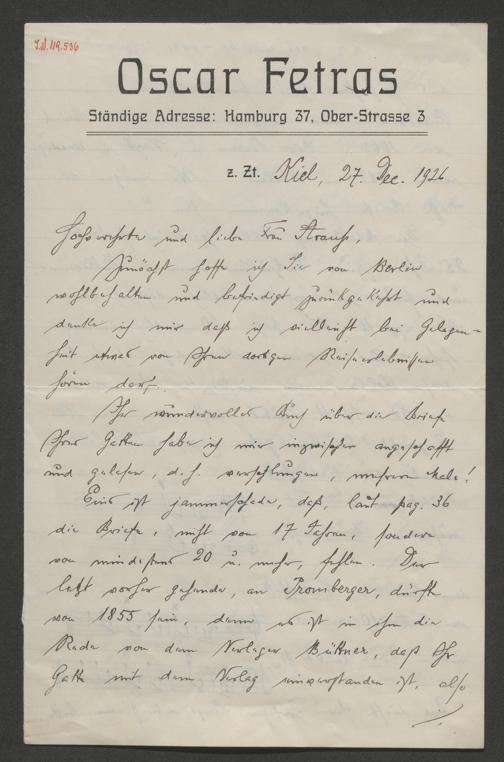 I.N. 119.536
Oscar Fetras
Ständige Adresse: Hamburg 37, Ober-Strasse 3
z. Zt. Kiel, 27. Dec. 1926
Hochverehrte und liebe Frau Strauss,
Zunächst hoffe ich Sie von Berlin
wohlbehalten und befriedigt zurückgekehrt und
denke ich mir daß ich vielleicht bei Gelegen-
heit etwas von Ihren dortigen Reiseerlebnissen
hören darf.
Ihr wundervolles Buch über die Briefe
Ihres Gatten habe ich mir inzwischen angeschafft
und gelesen, d.h. verschlungen, mehrere Male!
Eins ist jammerschade, daß, laut pag. 36
die Briefe, nicht von 17 Jahren, sondern
von mindestens 20 u. mehr, fehlen. Der
letzt vorher gehende, an Promberger, dürfte
von 1855 sein, denn es ist in ihm die
Rede von dem Verleger Büttner, daß Ihr
Gatte mit dem Verlag einverstanden ist, also